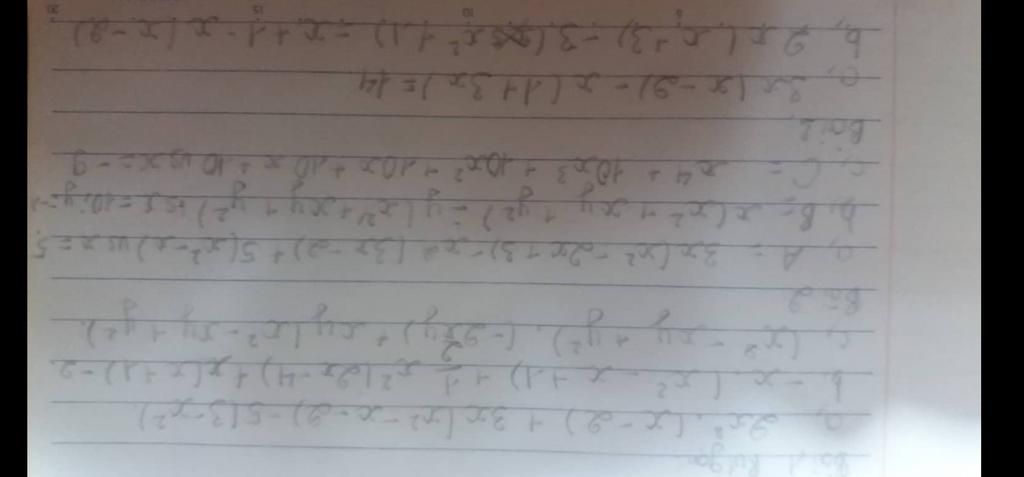 Bài 1 Rút gọn
a, 2x² . (x - 2) + 3x (x² - x - 2) - 5(3 - x²)
b, - x (x² - x + 1) + 1/2 x² (2x - 4) + x(x + 1) - 2
c, (x² - xy + y²) . (-2xy) + xy (x² - xy + y²).
Bài 2
a, A = 3x (x² - 2x + 3) - x² (3x - 2) + 5(x² - x) với x = 5
b, B = x (x² + xy + y²) - y (x² + xy + y²) với x = 10; y = -1
c, C = x4 + 10x³ + 10x² + 10x + 10 với x = - 9
Bài 2,
a, 3x (x - 2) - x (1 + 3x) = 14
b, 2x (x + 3) - 3 (x² + 1) = x + 1 - x (x - 2)
5 10 15 20